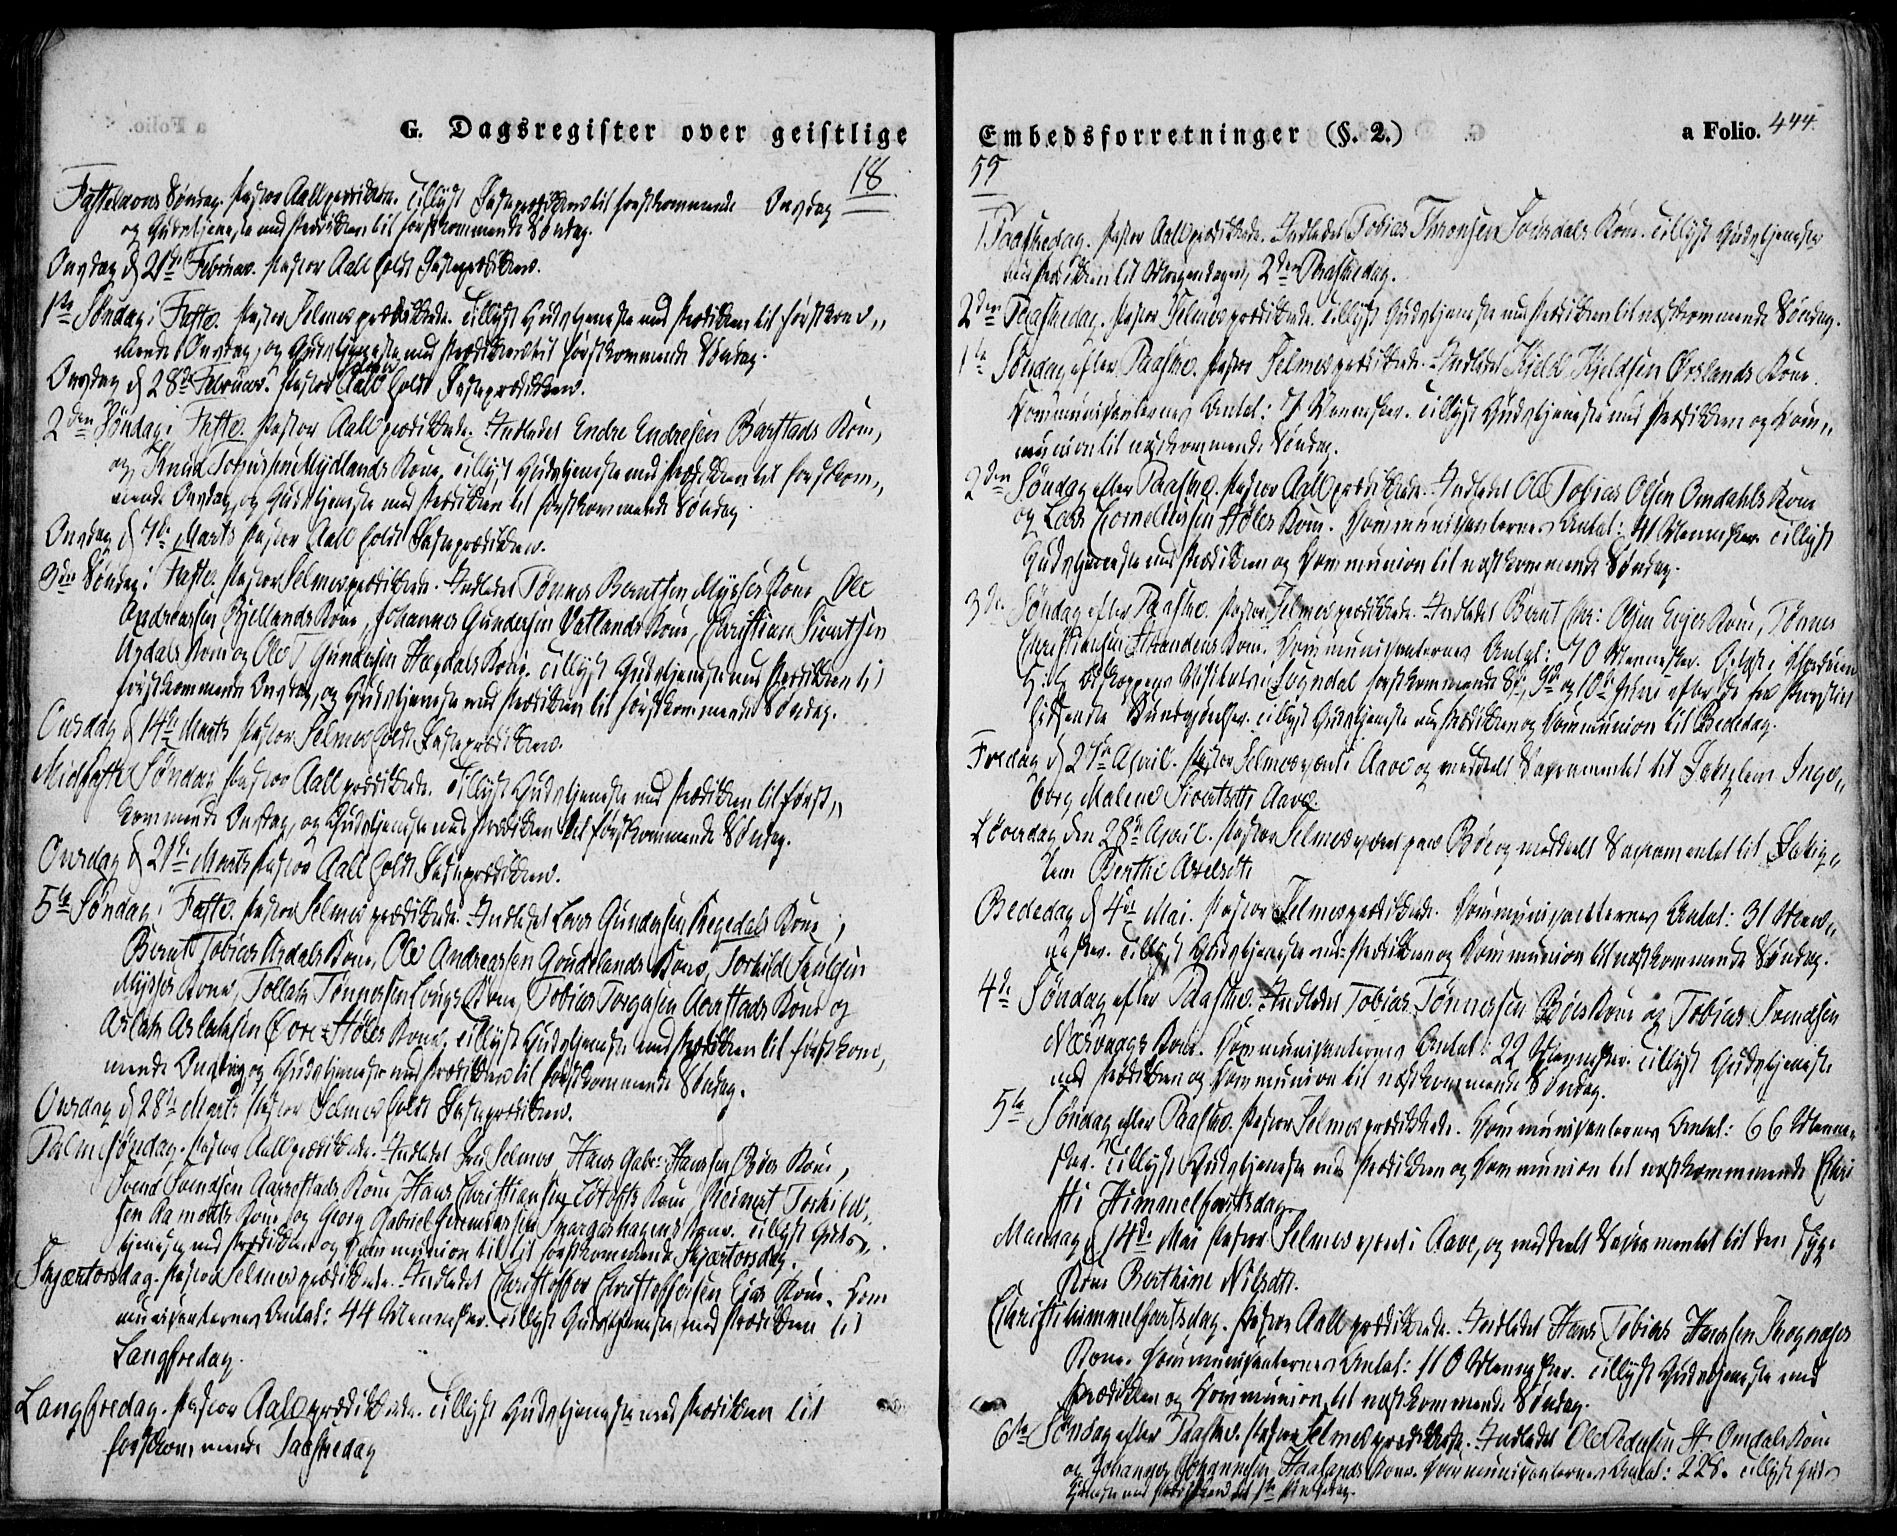 G. Dagsregister over geistlige
18
Fastelavns Søndag. Pastor Aall prædikede. Tillyst Fasteprædiken til førstkommende Onsdag
og Gudstjeneste med Prædiken til førstkommende Søndag.
Onsdag d 21de Februar. Pastor Aall holdt Fasteprædiken.
1ste Søndag i Faste. Pastor Selmer prædikede. Tillyst Gudstjeneste med Prædiken til førstkom„
mende Onsdag, og Gudstjeneste med Prædiken til førstkommende Søndag.
Onsdag d 28de Februar. Pastor Aall holdt Fasteprædiken.
2den Søndag i Faste. Pastor Aall prædikede. Indledet Endre Endresen Barstads Kone,
og Knud Mydlands Kone. Tillyst Gudstjeneste med Prædiken til førstkom„
mende Onsdag, og Gudstjeneste med Prædiken til førstkommende Søndag.
Onsdag d 7de Marts Pastor Aall holdt Fasteprædiken.
3die Søndag i Faste. Pastor Selmer prædikede. Indledet Tønnes Berntsen Mysses Kone Ole
Andreassen Bjellands Kone, Johannes Gundersen Vatlands Kone, Christian Sivertsen
Aadals Kone og Ole T Gundersen Hægdals Kone. Tillyst Gudstjeneste med Prædiken til
førstkommende Onsdag, og Gudstjeneste med Prædiken til førstkommende Søndag.
Onsdag d 14de Marts Pastor Selmer holdt Fasteprædiken.
Midfaste Søndag Pastor Aall prædikede. Tillyst Gudstjeneste med Prædiken til først„
kommende Onsdag, og Gudstjeneste med Prædiken til førstkommende Søndag.
Onsdag d 21de Marts Pastor Aall holdt Fasteprædiken.
5te Søndag i Faste. Pastor Selmer prædikede. Indledet Lars Gundersen Regedals Kone,
Bernt Tobias Aadals Kone, Ole Andreassen Goudelands Kone, Torkild
Mysses Kone, Tollak Tønnessen Longs Kone, Tobias Torgersen Aarstads Kone og
Aslak Aslaksen Øvre-Høles Kone, tillyst Gudstjeneste med Prædiken til førstkom,
mende Onsdag og Gudstjeneste med Prædiken til førstkommende Søndag.
Onsdag d 28de Marts Pastor Selmer holdt Fasteprædiken.
Palmesøndag. Pastor Aall prædikede. Indledet Selmer, Hans Gabr: Hanssen Bøes Kone,
Svend Svendsen Aarrestads Kone, Hans Christiansen Kone, Reinert Torkild„
sen Ramotts Kone, og Georg Gabriel Kone. Tillyst Guds„
tjeneste med Prædiken og Communion til til førstkommende Skjærtorsdag.
Skjærtorsdag. Pastor Selmer prædikede. Indledet Christoffer Christoffersen Eies Kone. Com
municanternes Antal: 44 Mennesker. Tillyst Gudstjeneste med Prædiken til
Langfredag.
Langfredag. Pastor Aall prædikede. Tillyst Gudstjeneste med Prædiken til
førstkommende Paaskedag
Embedsforretninger (§. 2.)
a Folio. 444.
55
1 Paaskedag. Pastor Aall prædikede. Indledet Tobias Thronsen Soursdals Kone. Tillyst Gudstjeneste
med Prædiken til Morgendagen, 2den Paaskedag.
2den Paaskedag. Pastor Selmer prædikede. Tillyst Gudstjeneste med Prædiken til næstkommende Søndag.
1ste Søndag efter Paaske. Pastor Selmer prædikede. Indledet Kjeld Kjeldsen Ørslands Kone.
Communicanternes Antal: 7 Mennesker. Tillyst Gudstjeneste med Prædiken og Com„
munion til næstkommende Søndag.
2den Søndag efter Paaske. Pastor Aall prædikede. Indledet Ole Tobias Olsen Omdahls Kone
og Lars Corneliussen Høles Kone. Communicanternes Antal: 41 Mennesker tillyst
Gudstjeneste med Prædiken og Communion til næstkommende Søndag.
3die Søndag efter Paaske. Pastor Selmer prædikede. Indledet Bernt Chr: Olsen Eyes Kone, Tønnes
Christiansen Strandens Kone. Communicanternes Antal: 70 Mennesker.
Biskoppens Visitats i Sogndal førstkommende 8de, 9de og 10de Juni efter
Kundgjørelse. tillyst Gudstjeneste med Prædiken og Communion til Bededag.
Fredag d 27de April. Pastor Selmer været i Aave og meddeelt Sacramentet til Inge„
borg Malene Sivertsdtr Aave.
Løverdag den 28de April. Pastor Selmer været paa Bøe og meddeelt Sacramentet til
Berthe Axelsdtr
Bededag d 4de Mai. Pastor Selmer prædikede. Communicanternes Antal: 31 Men„
nesker. Tillyst Gudstjeneste med Prædiken og Communion til næstkommende Søndag.
4de Søndag efter Paaske. Indledet Tobias Tønnessen Bøes Kone og Tobias Svendsen
Næsvaags Kone. Communicanternes Antal: 22 Mennesker. Tillyst Gudstjeneste
med Prædiken og Communion til næstkommende Søndag.
5te Søndag efter Paaske. Pastor Selmer prædikede. Communicanternes Antal: 66 Menne„
sker. Tillyst Gudstjeneste med Prædiken og Communion til næstkommende Chri
sti Himmelfartsdag.
Mandag d 14de Mai Pastor Selmer været i Aave, og meddeelt Sacramentet til den syge
Kone Berthine Nilsdtr.
Christi himmelfartsdag. Pastor Aall prædikede. Indledet Hans Tobias Hanssen Stognæses
Kone. Communicanternes Antal: 110 Mennesker. tillyst Gudstjeneste med
Prædiken og Communion til næstkommende Søndag.
6te Søndag efter Paaske. Pastor Selmer prædikede. Indledet Ole Pedersen St. Omdals Kone
og Johannes Johannesen Haalands Kone. Communicanternes Antal: 228. tillyst Guds
tjeneste med Prædiken til 1ste Pintsedag.